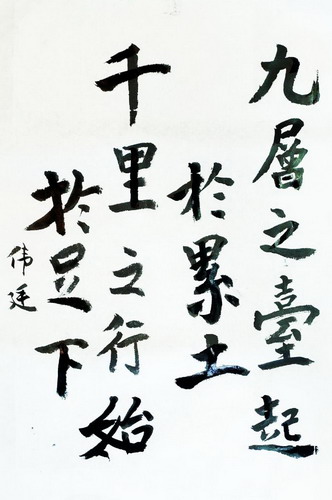 九層之臺起
於累土
千里之行始
於足下
伟廷